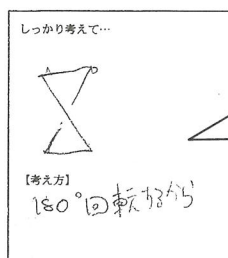 しっかり考えて…
【考え方】
180°回転するから